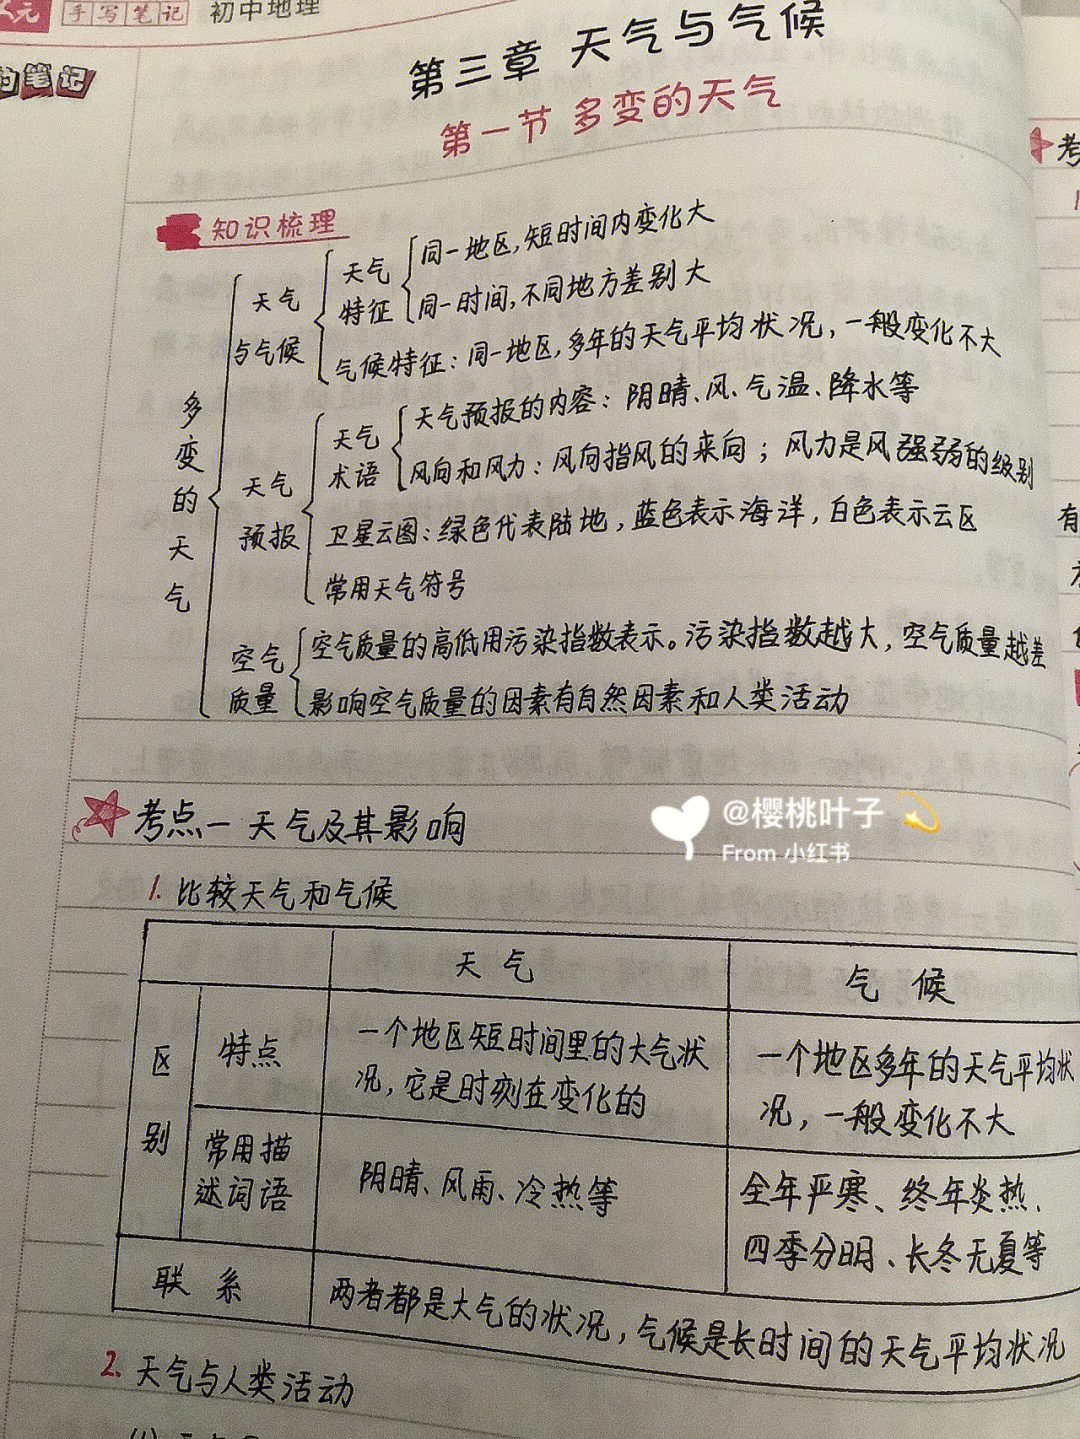 手写笔记 初中地理
笔记
第三章 天气与气候
第一节 多变的天气
知识梳理
多变的天气
天气与气候
天气特征
同一地区,短时间内变化大
同一时间,不同地方差别大
气候特征:同一地区,多年的天气平均状况,一般变化不大
天气预报
天气术语
天气预报的内容:阴晴、风、气温、降水等
风向和风力:风向指风的来向;风力是风强弱的级别
卫星云图:绿色代表陆地,蓝色表示海洋,白色表示云区
常用天气符号
空气质量
空气质量的高低用污染指数表示。污染指数越大,空气质量越差
影响空气质量的因素有自然因素和人类活动
考点一 天气及其影响
@樱桃叶子
From 小红书
1. 比较天气和气候
天气 气候
区别
特点
一个地区短时间里的大气状
况,它是时刻在变化的
一个地区多年的天气平均状
况,一般变化不大
常用描
述词语
阴晴、风雨、冷热等
全年严寒、终年炎热、
四季分明、长冬无夏等
联系
两者都是大气的状况,气候是长时间的天气平均状况
2. 天气与人类活动
考
有